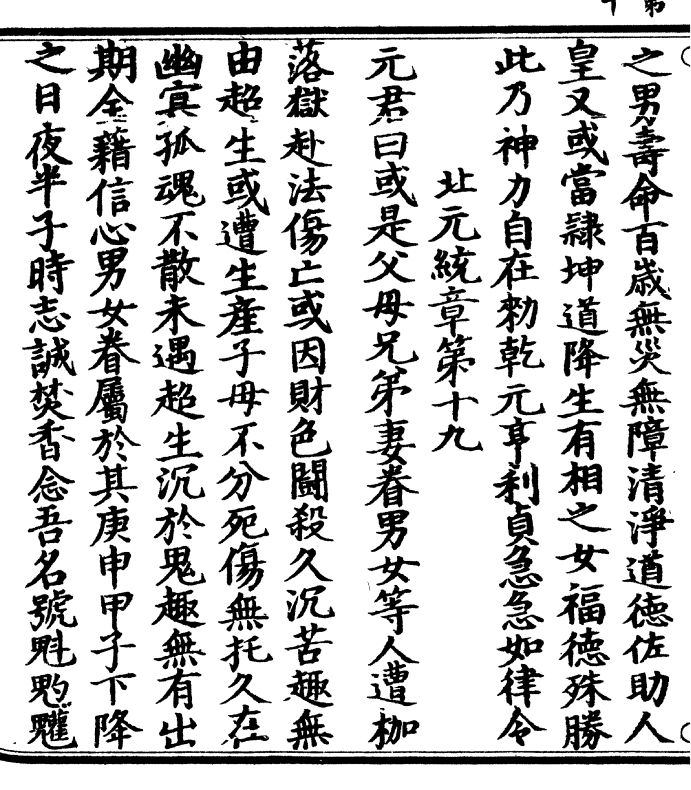 之男壽命百歲無災無障清淨道德佐助人
皇又或當隸坤道降生有相之女福德殊勝
此乃神力自在勑乾元亨利貞急急如律令
北元統章第十九
元君曰或是父母兄弟妻眷男女等人遭枷
落獄赴法傷亡或因財色鬪殺久沉苦趣無
由超生或遭生產子母不分死傷無托久在
幽㝠孤魂不散未遇超生沉於鬼趣無有出
期全藉信心男女眷屬於其庚申甲子下降
之日夜半子時志誠焚香念吾名號魁䰢䰱